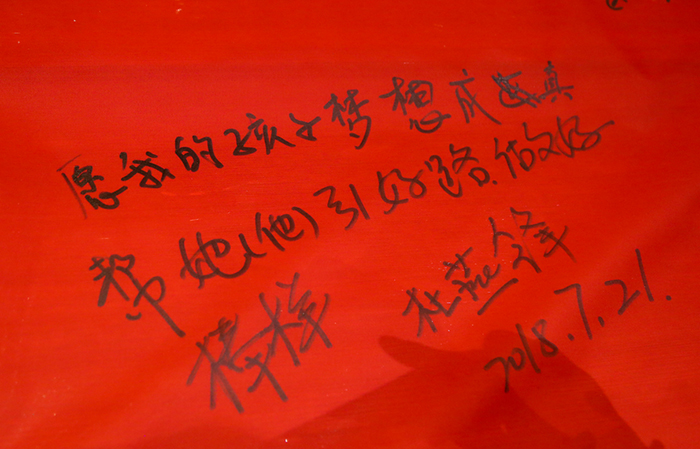 愿我的孩子梦想成真
帮她(他)引好路.做好
榜样
杜燕锋
2018.7.21.